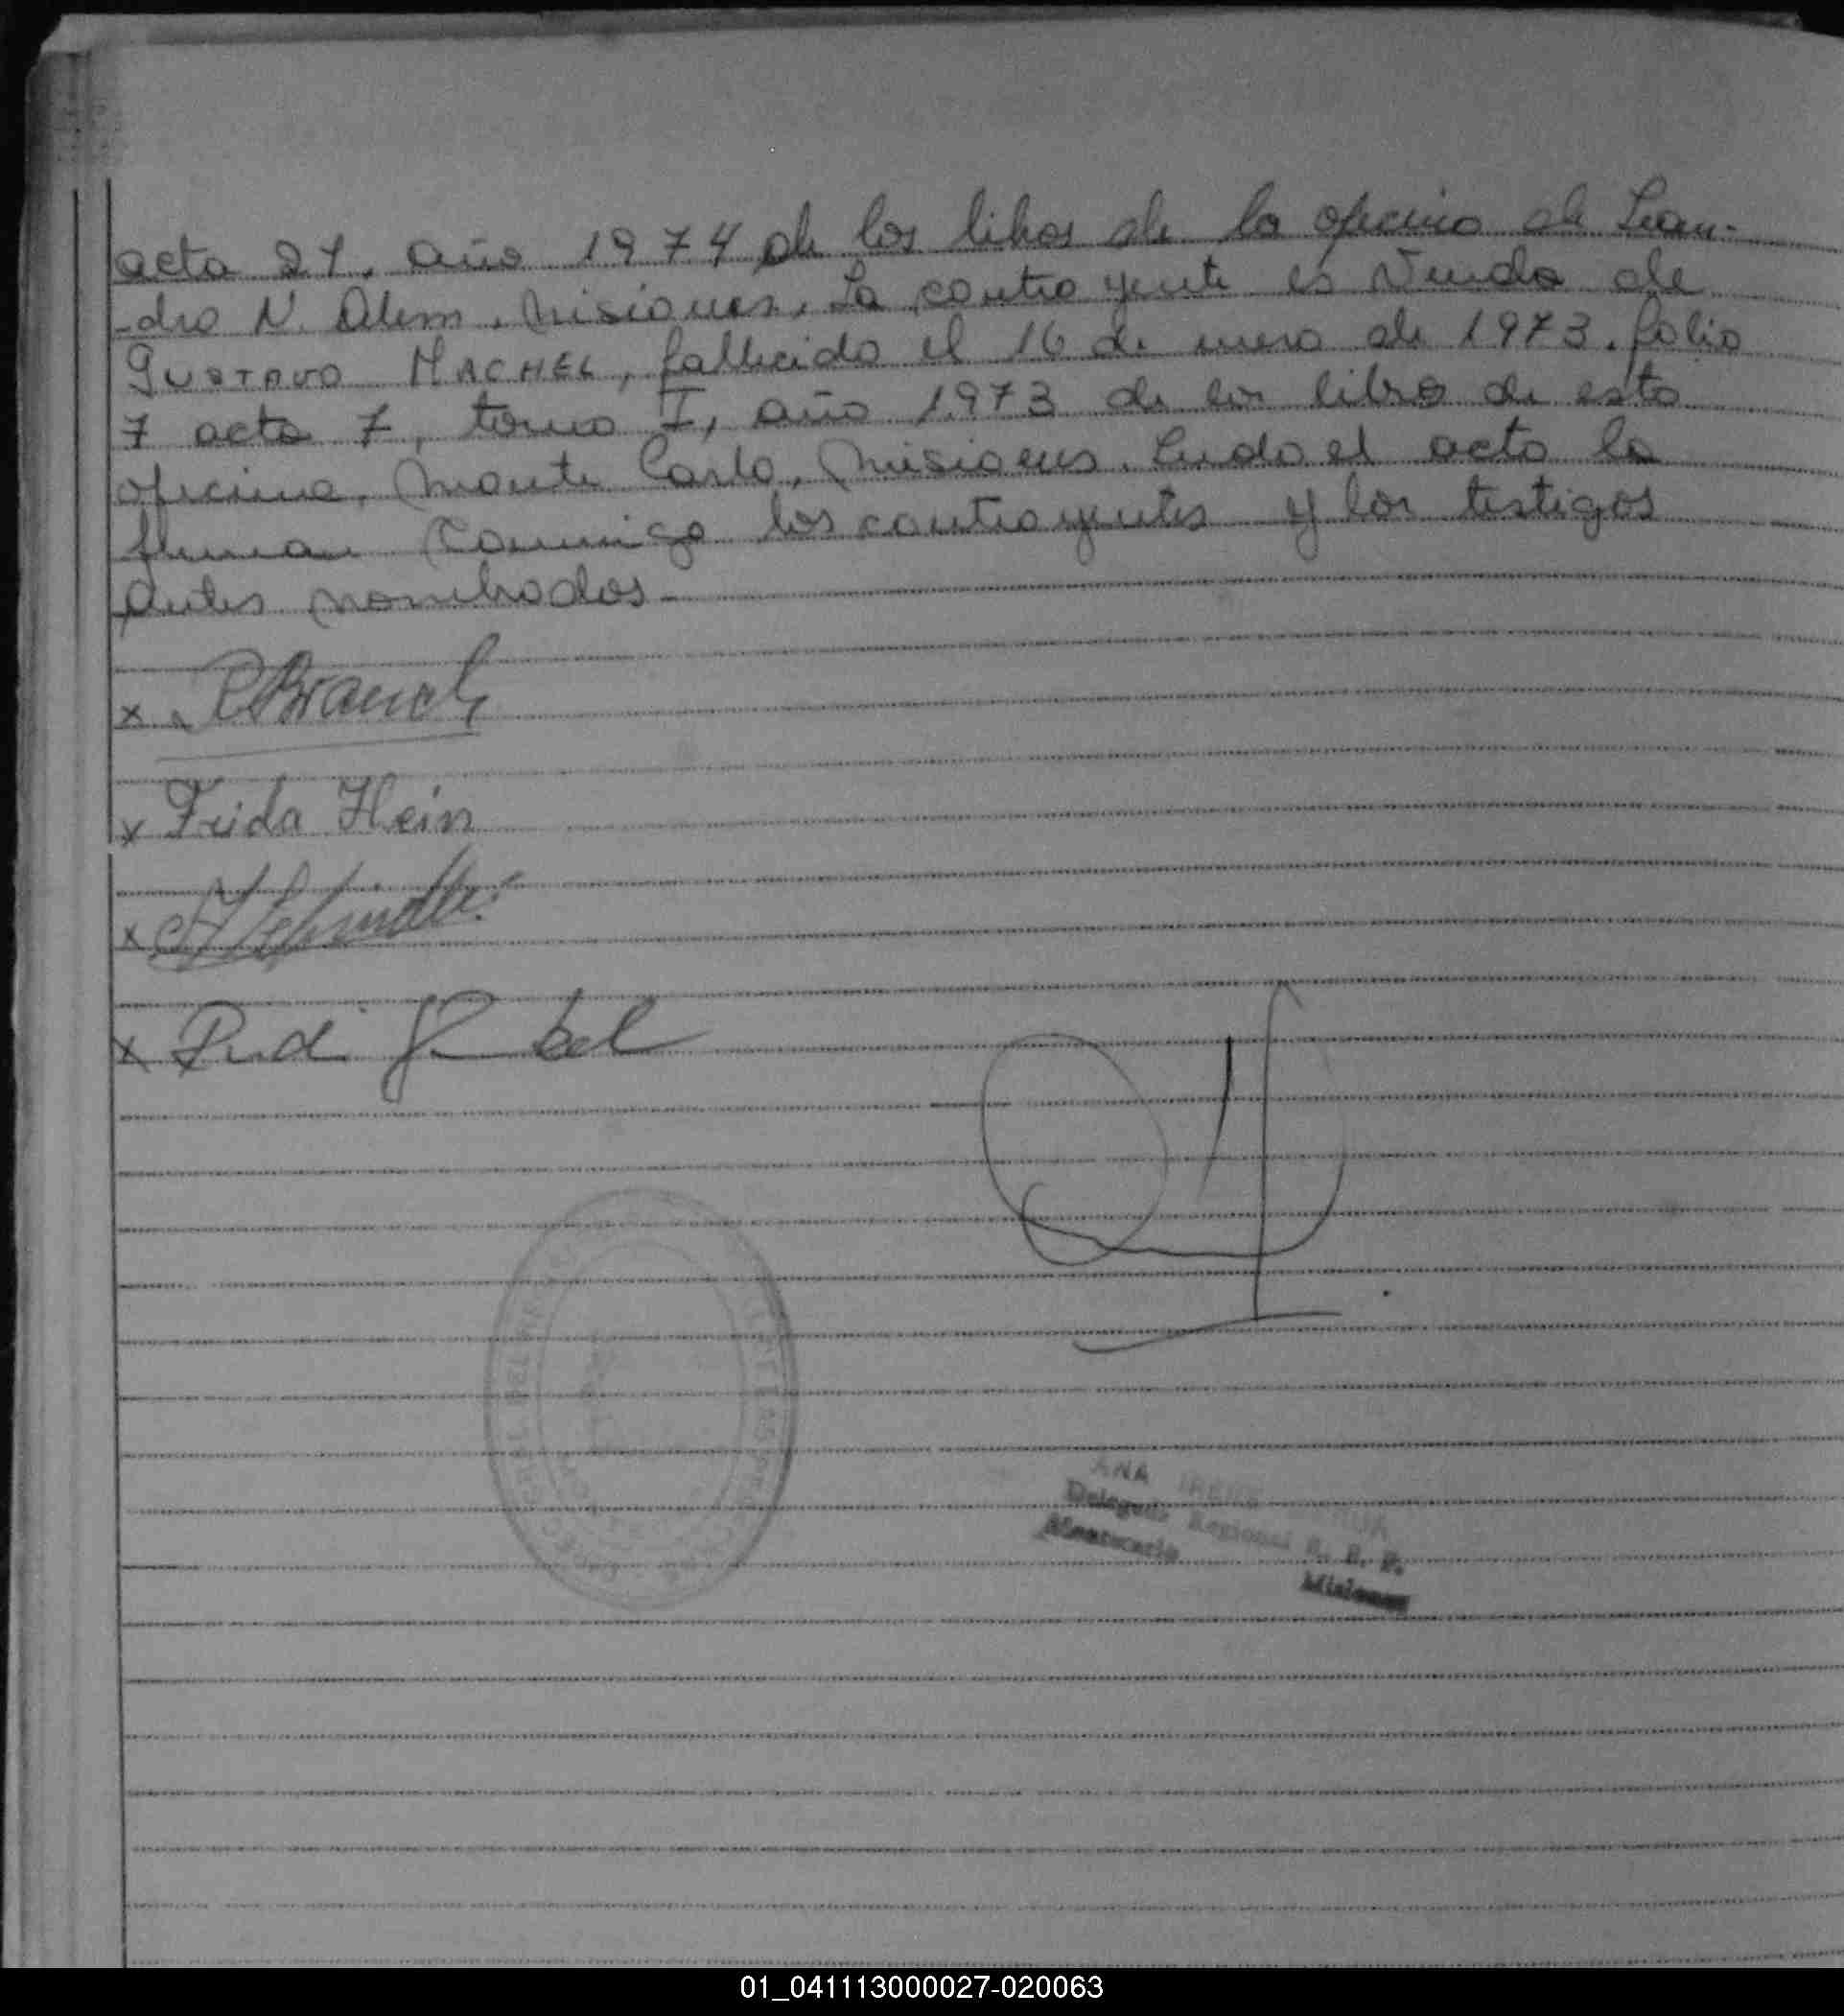 acta 21, año 1974 de los libros de la oficina de Lean-
-dro N. Alem, Misiones. La contrayente es Viuda de
GUSTAVO MACHEL, fallecido el 16 de enero de 1973. folio
7 acta 7, tomo I, año 1973 de los libros de esta
oficina, Monte Carlo, Misiones. Leida el acta la
firman Conmigo los contrayentes y los testigos
antes nombrados.-
x
x Frida Hein
x
x
ANA IRENE
Delegada Regional R. P.
Montecarlo
Misiones
01_041113000027-020063